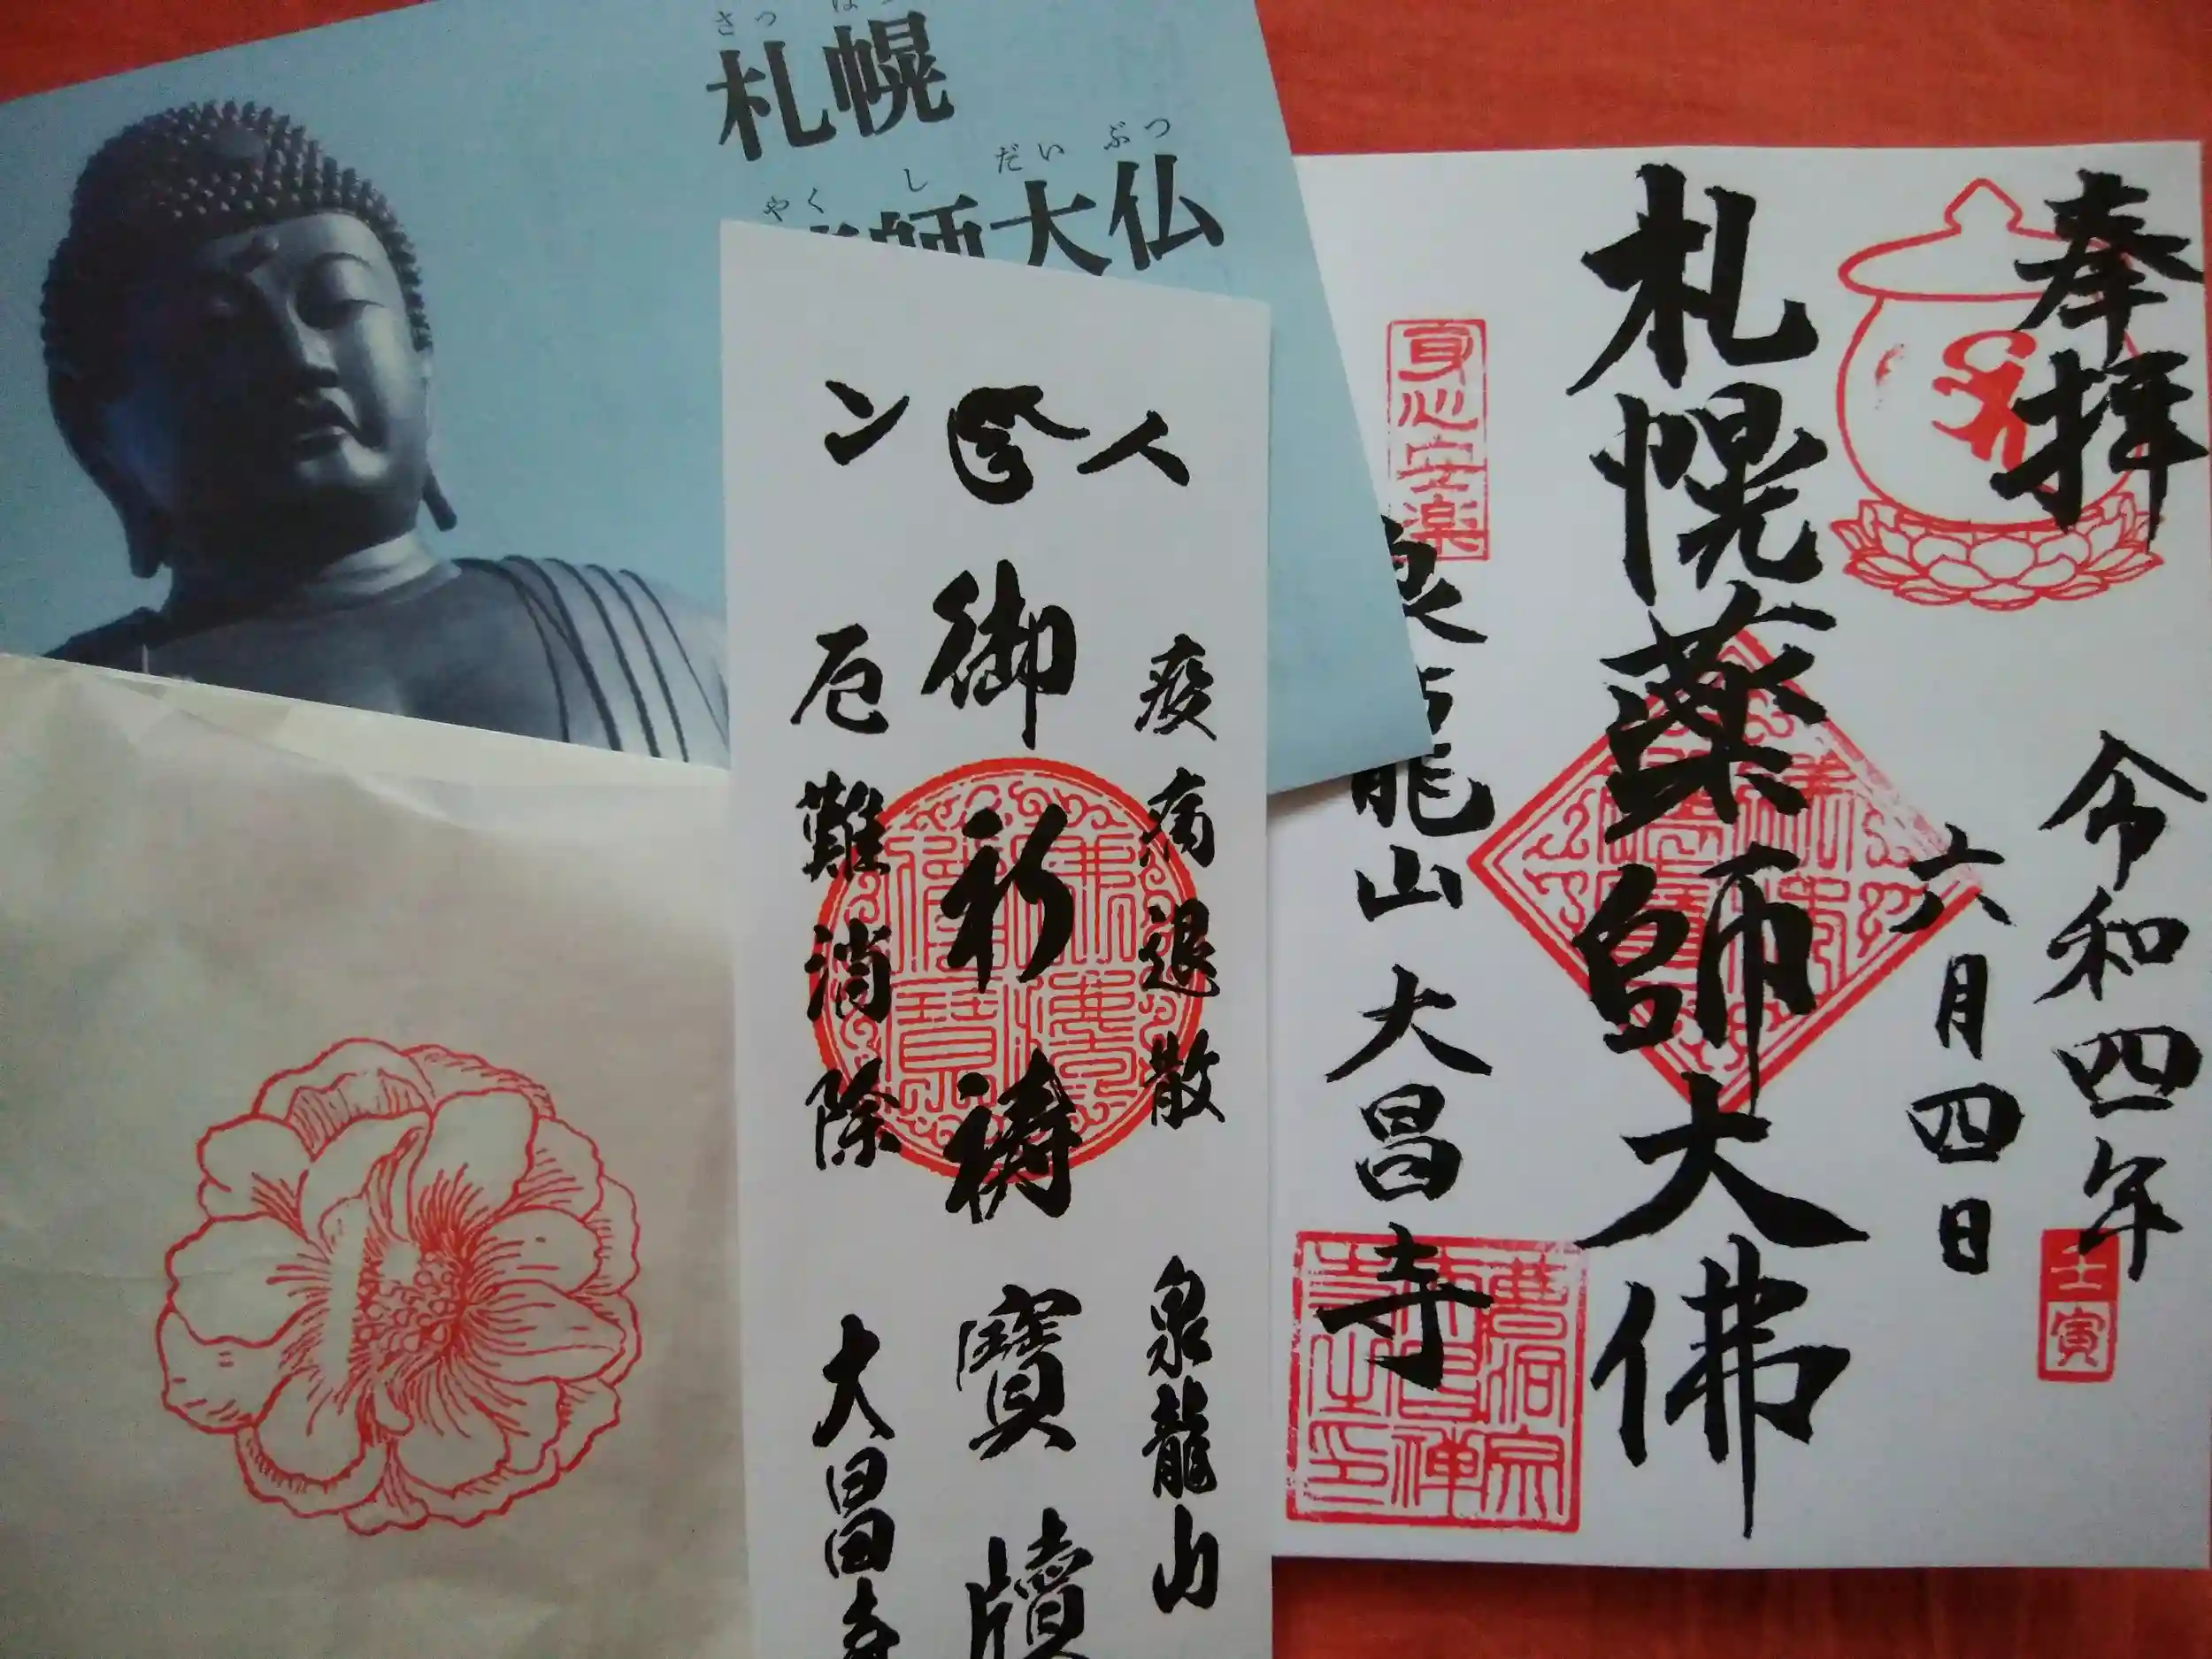 さっ
札幌
やくしだいぶつ
師大仏
ン ㊎ 人
疫病退散 泉龍山
御祈祷寳牘
厄難消除 大昌寺
奉拝
令和四年
六月四日
札幌薬師大佛
龍山 大昌寺
身心安楽
壬寅
曹洞宗
大昌禅
寺之印